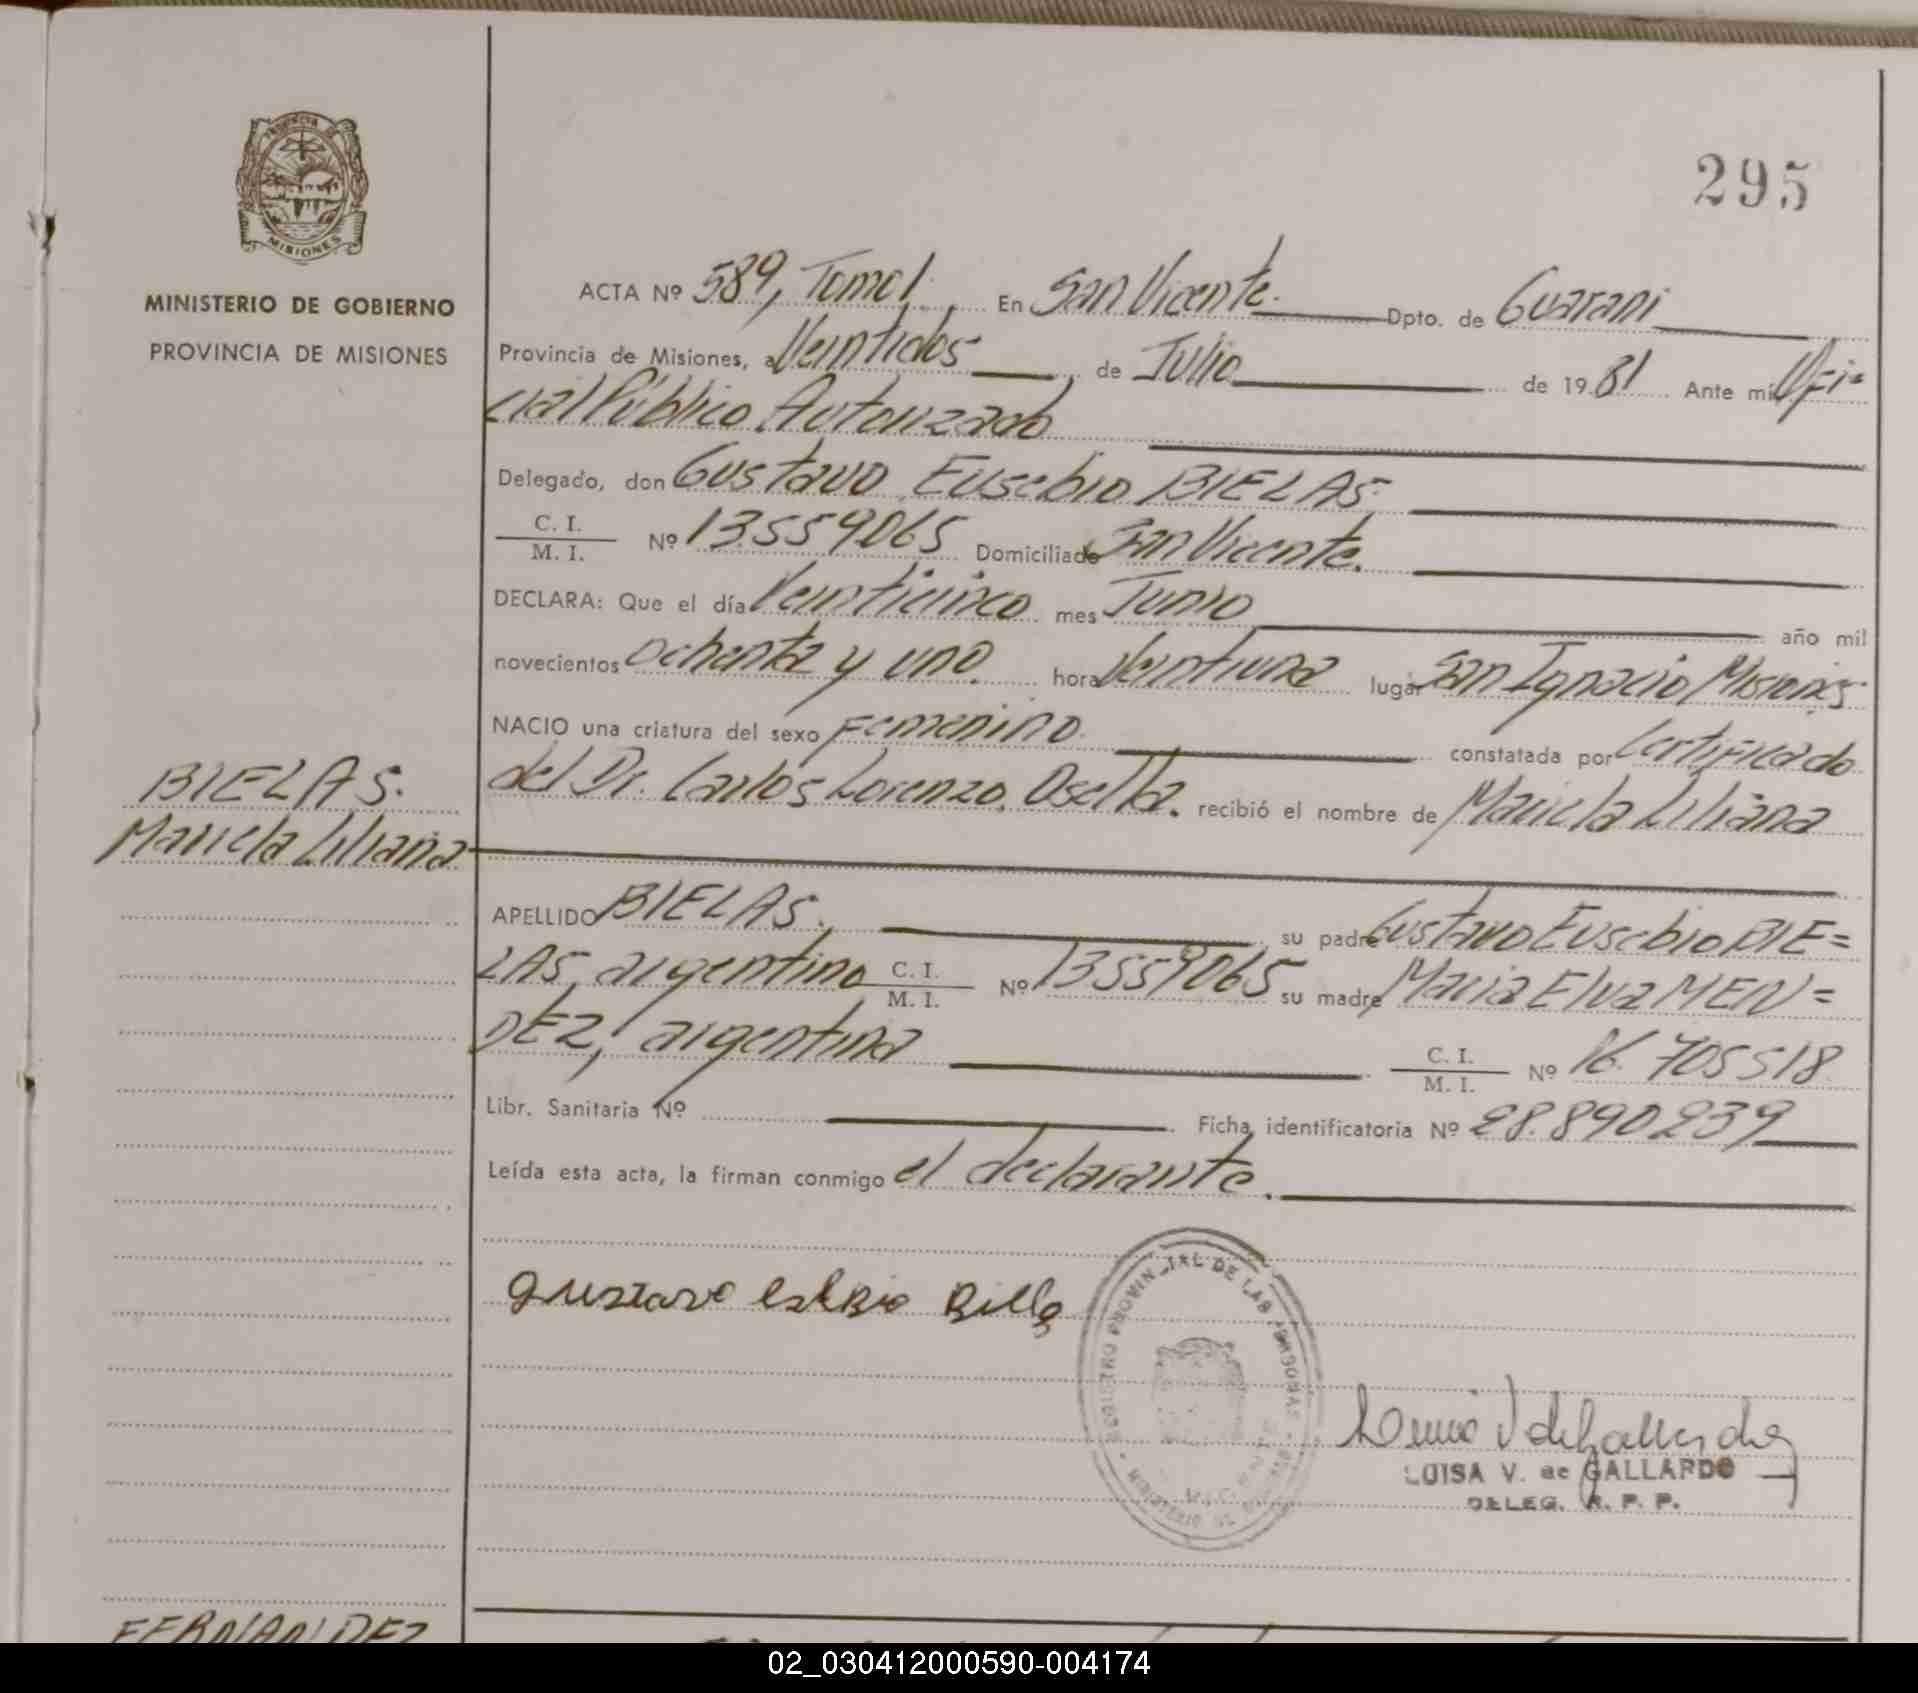 295
PROVINCIA DE
MISIONES
MINISTERIO DE GOBIERNO
PROVINCIA DE MISIONES
ACTA Nº 589, Tomo I. En San Vicente. Dpto. de Guarani
Provincia de Misiones, a Veintidos de Julio de 1981 Ante mí Ofi=
cial Público Autorizado
Delegado, don Gustavo Eusebio BIELAS.
C. I.
M. I. Nº 13.559065 Domiciliado San Vicente.
DECLARA: Que el día Veinticinco mes Junio año mil
novecientos ochenta y uno. hora Veintiuna lugar San Ignacio Misiones
NACIO una criatura del sexo Femenino. constatada por Certificado
del Dr. Carlos Lorenzo Osella. recibió el nombre de Mariela Liliana
BIELAS.
Mariela Liliana
APELLIDO BIELAS. su padre Gustavo Eusebio BIE=
LAS, argentino C. I. M. I. Nº 13559065 su madre Maria Elva MEN=
DEZ, argentina C. I. M. I. Nº 16.705518
Libr. Sanitaria Nº Ficha identificatoria Nº 28.890239
Leída esta acta, la firman conmigo el declarante.
REGISTRO PROVINCIAL DE LAS PERSONAS
LUISA V. de GALLARDO
DELEG. R. P. P.
FERNANDEZ
02_030412000590-004174